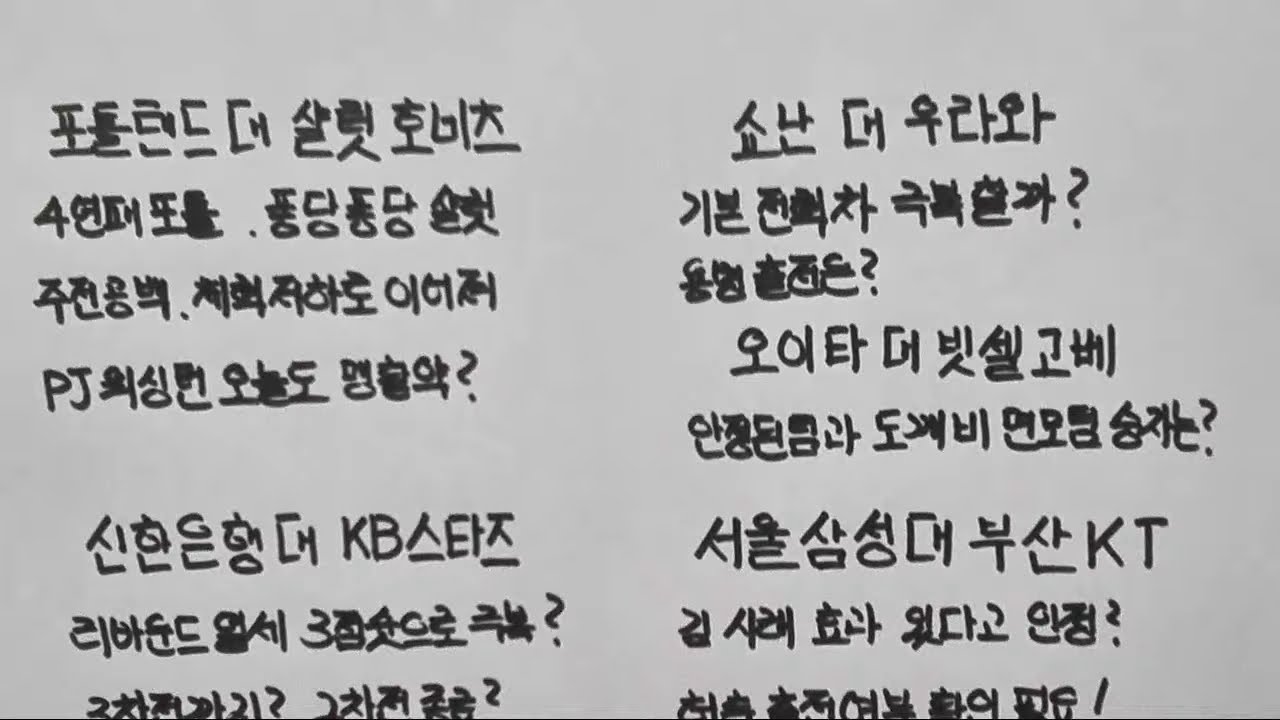 포틀랜드 대 샬럿 호네츠
4연패 포틀. 퐁당퐁당 샬럿
주전공백. 체력저하로 이어져
PJ 워싱턴 오늘도 맹활약?
쇼난 대 우라와
기본 전력차 극복할까?
용병 출전은?
오이타 대 빗셀고베
안정된팀과 도깨비 면모팀 승자는?
신한은행대 KB스타즈
리바운드 열세 3점슛으로 극복?
3차전까지? 2차전 종료?
서울삼성대 부산KT
김 시래 효과 있다고 인정?
허훈 출전여부 확인 필요!